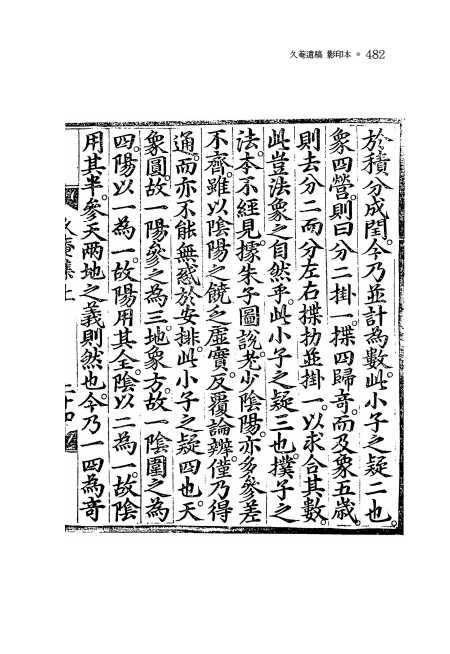 久菴遺稿 影印本 • 482
於積分成閏。今乃並計為數。此小子之疑二也。
象四營。則曰分二掛一。揲四歸奇。而及象五歲。
則去分二而分左右揲扐並掛一。以求合其數。
此豈法象之自然乎。此小子之疑三也。撲子之
法。本不經見。據朱子圖說。老少陰陽。亦多參差
不齊。雖以陰陽之饒乏虛實。反覆論辨。僅乃得
通。而亦不能無惑於安排。此小子之疑四也。天
象圓。故一陽參之為三。地象方。故一陰圍之為
四。陽以一為一。故陽用其全。陰以二為一。故陰
用其半。參天兩地之義則然也。今乃一四為奇
久菴集上
二十四